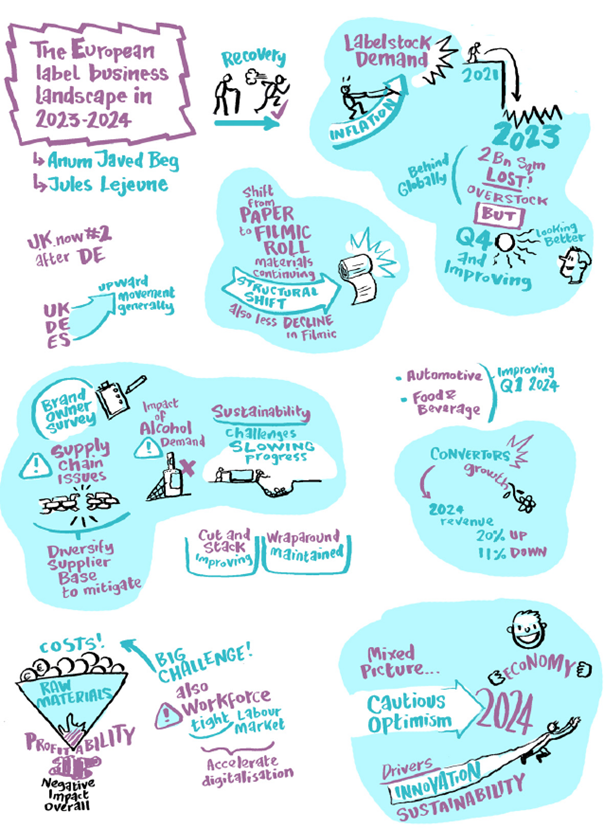 The European
label business
landscape in
2023-2024
Anum Javed Beg
Jules Lejeune
Recovery
Labelstock
Demand
INFLATION
2021
2023
2 Bn Sqm
LOST!
OVERSTOCK
BUT
Q4
and
Improving
Behind
Globally
Looking
Better
UK now #2
after DE
UK
DE
ES
upward
movement
generally
Shift
from
PAPER
to FILMIC
ROLL
materials
continuing
STRUCTURAL
SHIFT
also less DECLINE
in Filmic
Automotive
Food &
Beverage
Improving
Q1 2024
Brand
Owner
Survey
Supply
Chain
ISSUES
Diversify
Supplier
Base
to mitigate
Impact
of
Alcohol
Demand
Sustainability
challenges
SLOWING
progress
Cut and
Stack
Improving
Wraparound
Maintained
CONVERTORS
growth
2024
revenue
20% UP
11% DOWN
COSTS!
RAW
MATERIALS
PROFITABILITY
Negative
Impact
Overall
BIG
CHALLENGE!
also
Workforce
tight Labour
Market
Accelerate
digitalisation
Mixed
Picture...
Cautious
Optimism
2024
ECONOMY
Drivers
INNOVATION
SUSTAINABILITY